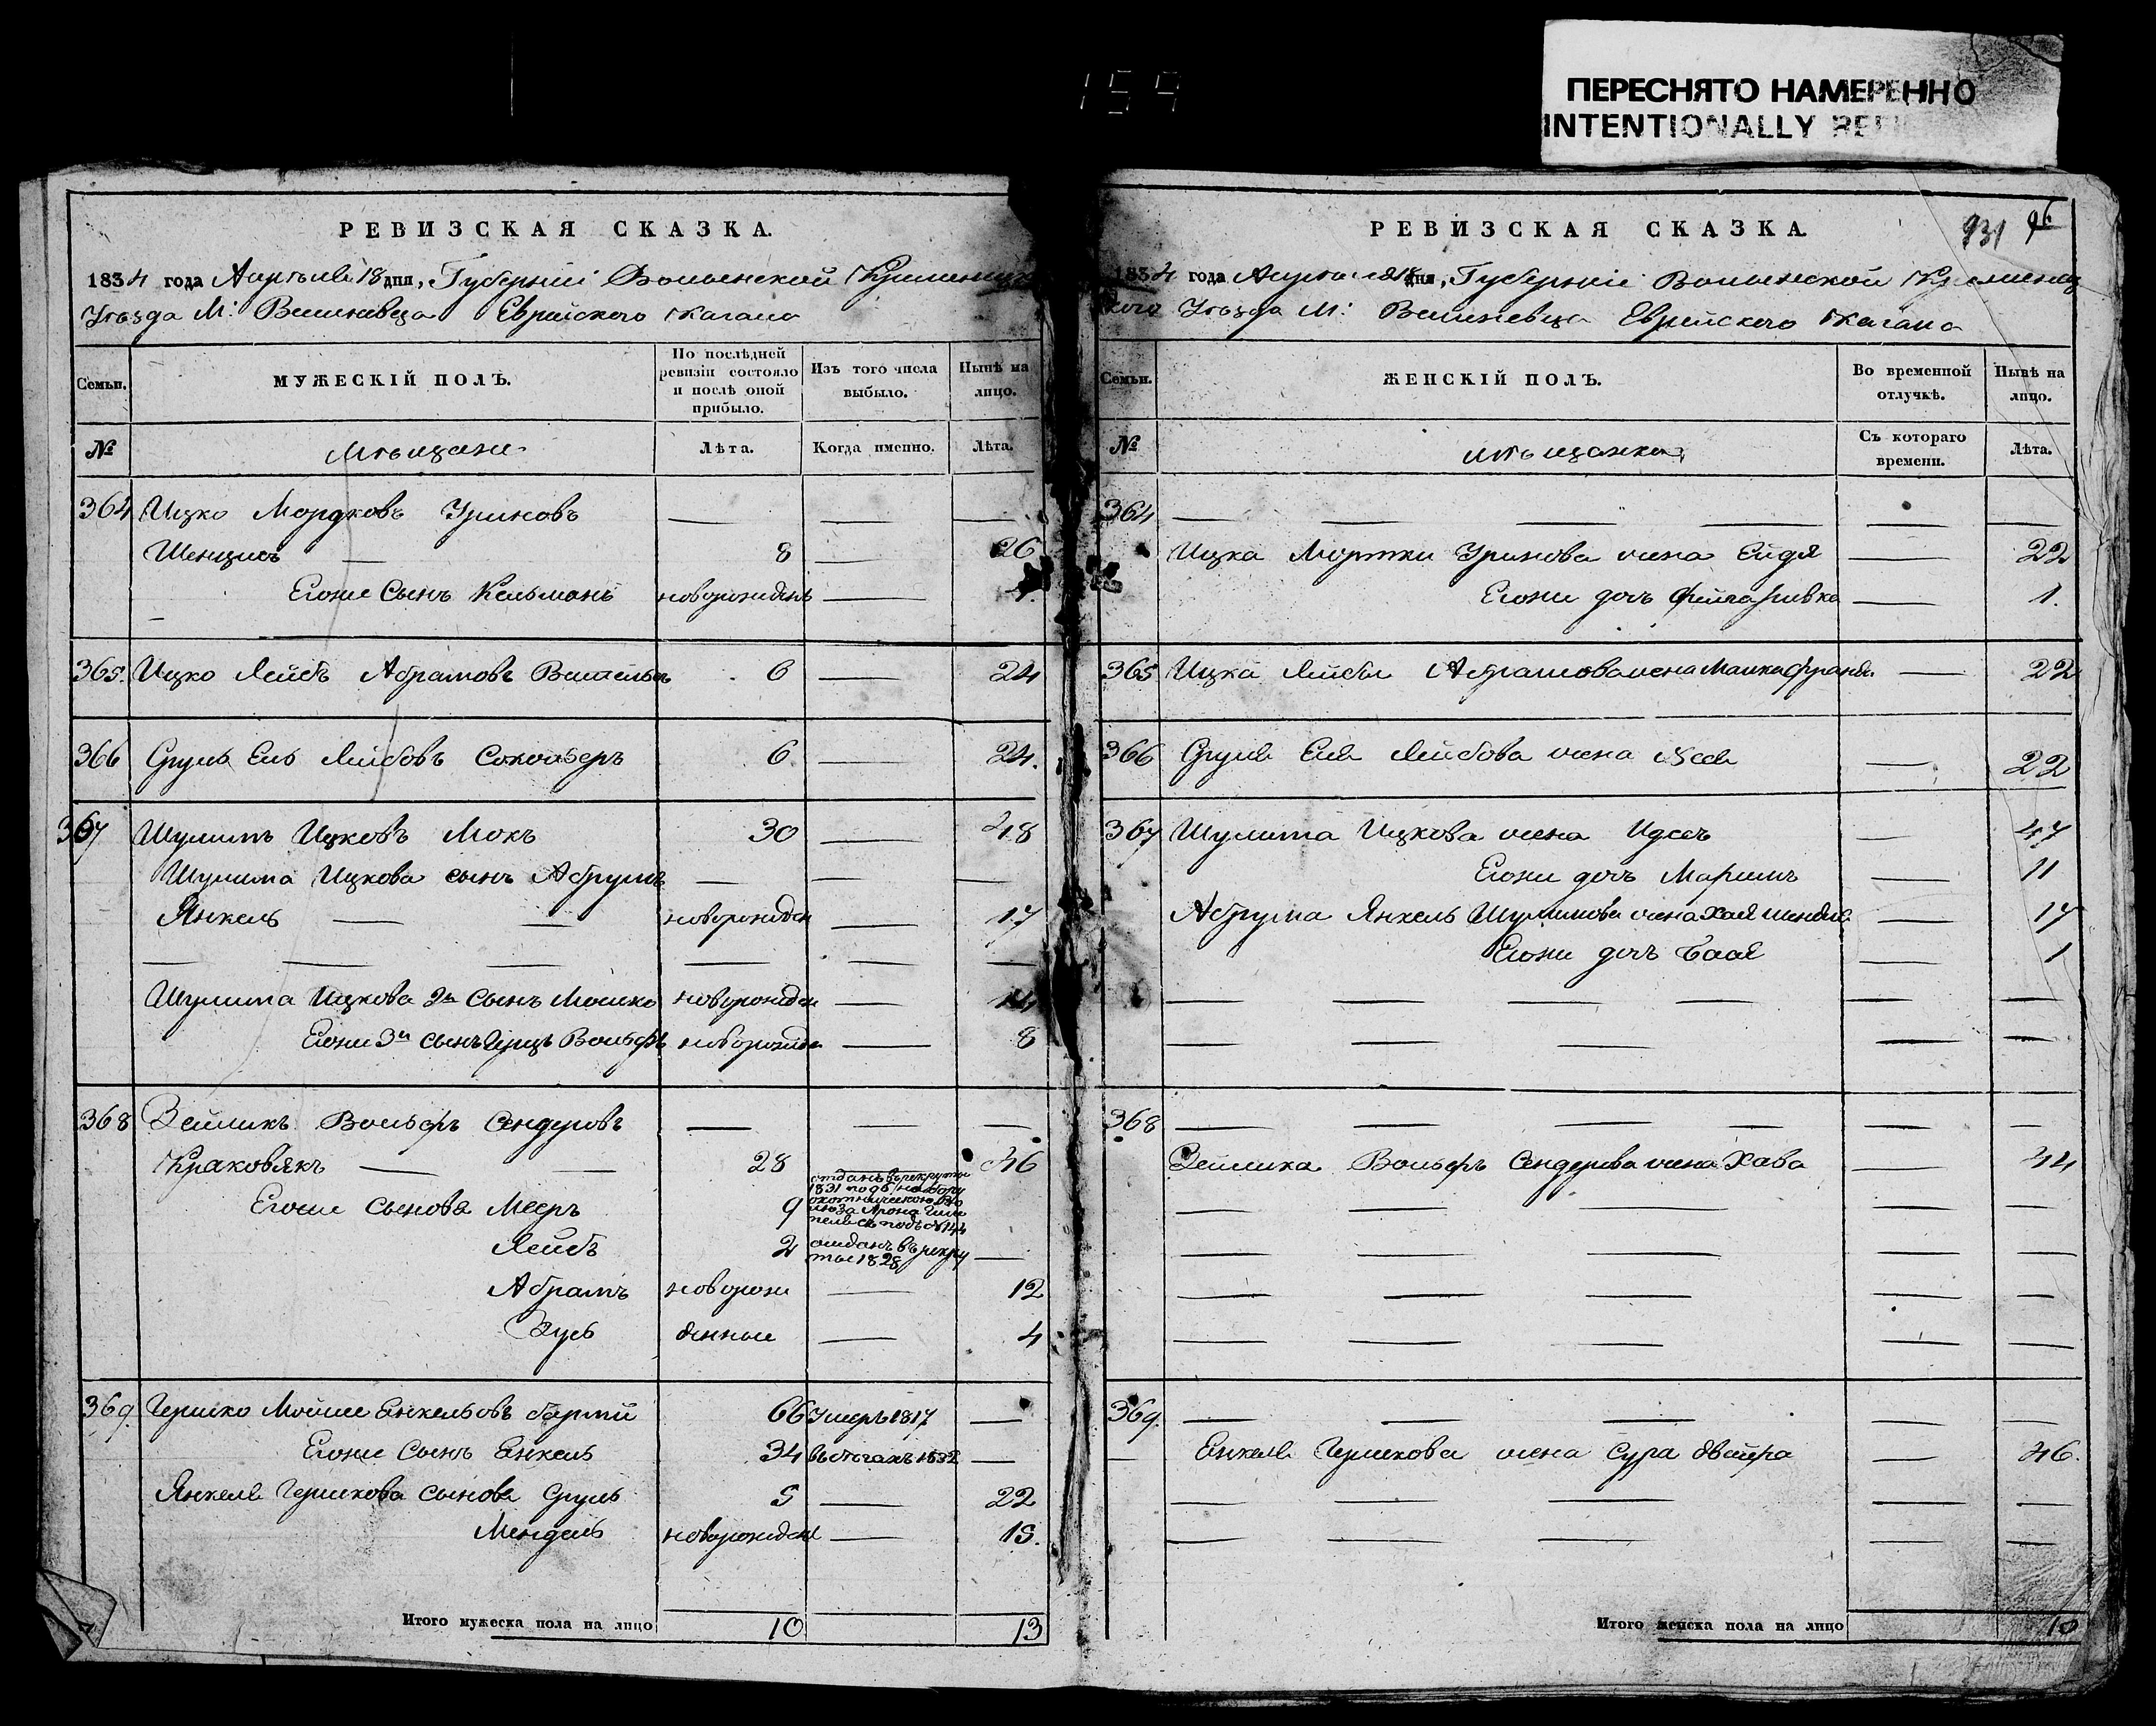 159
ПЕРЕСНЯТО НАМЕРЕННО
INTENTIONALLY
РЕВИЗСКАЯ СКАЗКА.
1834 года Апрѣля 18 дня, Губерніи Волынской Кременец
Уѣзда М: Вишневца Еврейского Кагала
Семьи. МУЖЕСКІЙ ПОЛЪ. По послѣдней ревизіи состояло и послѣ оной прибыло. Изъ того числа выбыло. Нынѣ на лицо.
№ Мѣщане Лѣта. Когда именно. Лѣта.
364 Ицко Мордковъ Уриновъ — — —
— 8 — 26
Егоже Сынъ Кельманъ новорожденъ —
365. Ицко Лейбъ Абрамовъ 6 — 24
366 Сруль Ель Лейбовъ 6 — 24.
367 Шулимъ Ицковъ Мокъ 30 — 48
Шулима Ицкова сынъ Абрумъ — — —
Янкель — — новорожден — 17
— — — — — —
Шулима Ицкова 2й Сынъ Мошко новорожден — 14
Егоже 3й сынъ Герцъ Вольфъ новорожден — 8
368 Зейликъ Вольфъ Сендеровъ — — —
Краковякъ — — 28 — 46
Егоже Сынова Мееръ 9 отданъ въ рекруты
1831
Лейбъ 2 отданъ въ рекру
ты 1828 —
Абрамъ новорож — 12
Зусь денные — 4
369. Гершко Мойше Енкельовъ 66 Умеръ 1817 —
Егоже Сынъ Енкель 34 въ бѣгахъ 1832 —
Янкеля Гершкова сынова Сруль 5 — 22
Мендель новорожден — 15.
Итого мужеска пола на лицо 10 13
РЕВИЗСКАЯ СКАЗКА.
931 96
1834 года Апрѣля 18 дня, Губерніи Волынской Кременец
кого Уѣзда М: Вишневца Еврейского Кагала
Семьи. ЖЕНСКІЙ ПОЛЪ. Во временной отлучкѣ. Нынѣ на лицо.
№ мѣщанки Съ котораго времени. Лѣта.
364 — — — — — —
Ицка Мортки Уринова жена Ейдя — 22
Егоже дочь — 1.
365 Ицка Лейбы Абрамова жена — 22
366 Сруля Еля Лейбова жена — 22
367 Шулима Ицкова жена — 47
Егоже дочь Маримъ — 11
Абрума Янкель Шулимова жена Хая — 17
Егоже дочь — 1
— — — — — —
— — — — —
368 — — — — — —
Зейлика Вольфъ Сендерова жена Хава — 44
— — — — —
— — — — —
— — — — —
— — — — —
369. — — — — —
— Енкеля Гершкова жена Сура Двейра — 46.
— — — — —
— — — — —
Итого женска пола на лицо 10